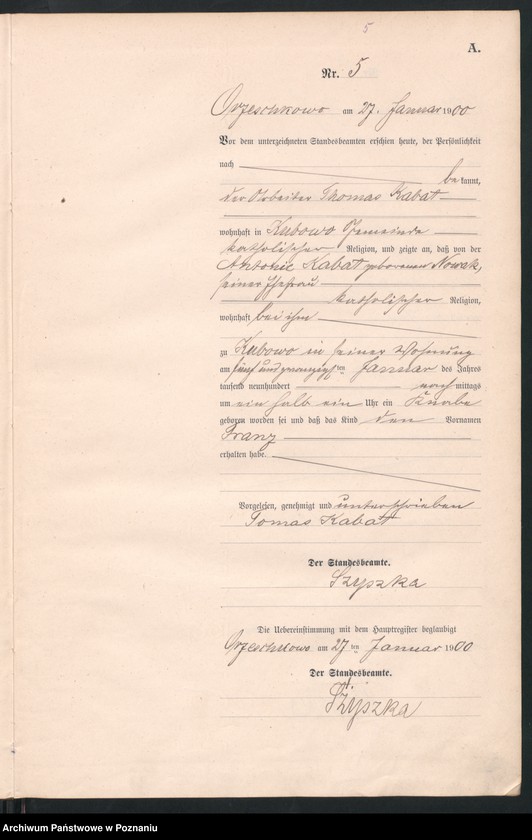 5
A.
Nr. 5
Orzeschkowo am 27. Januar 1900
Vor dem unterzeichneten Standesbeamten erschien heute, der Persönlichkeit
nach be kannt,
der Arbeiter Thomas Kabat
wohnhaft in Kubowo Gemeinde
katholischer Religion, und zeigte an, daß von der
Antonie Kabat geborenen Nowak,
seiner Ehefrau
katholischer Religion,
wohnhaft bei ihm
zu Kubowo in seiner Wohnung
am fünf und zwanzigsten Januar des Jahres
tausend neunhundert nach mittags
um ein halb ein Uhr ein Knabe
geboren worden sei und daß das Kind den Vornamen
Franz
erhalten habe.
Vorgelesen, genehmigt und unterschrieben
Tomas Kabat
Der Standesbeamte.
Szyszka
Die Uebereinstimmung mit dem Hauptregister beglaubigt
Orzeschkowo am 27 ten Januar 1900
Der Standesbeamte.
Szyszka
Archiwum Państwowe w Poznaniu